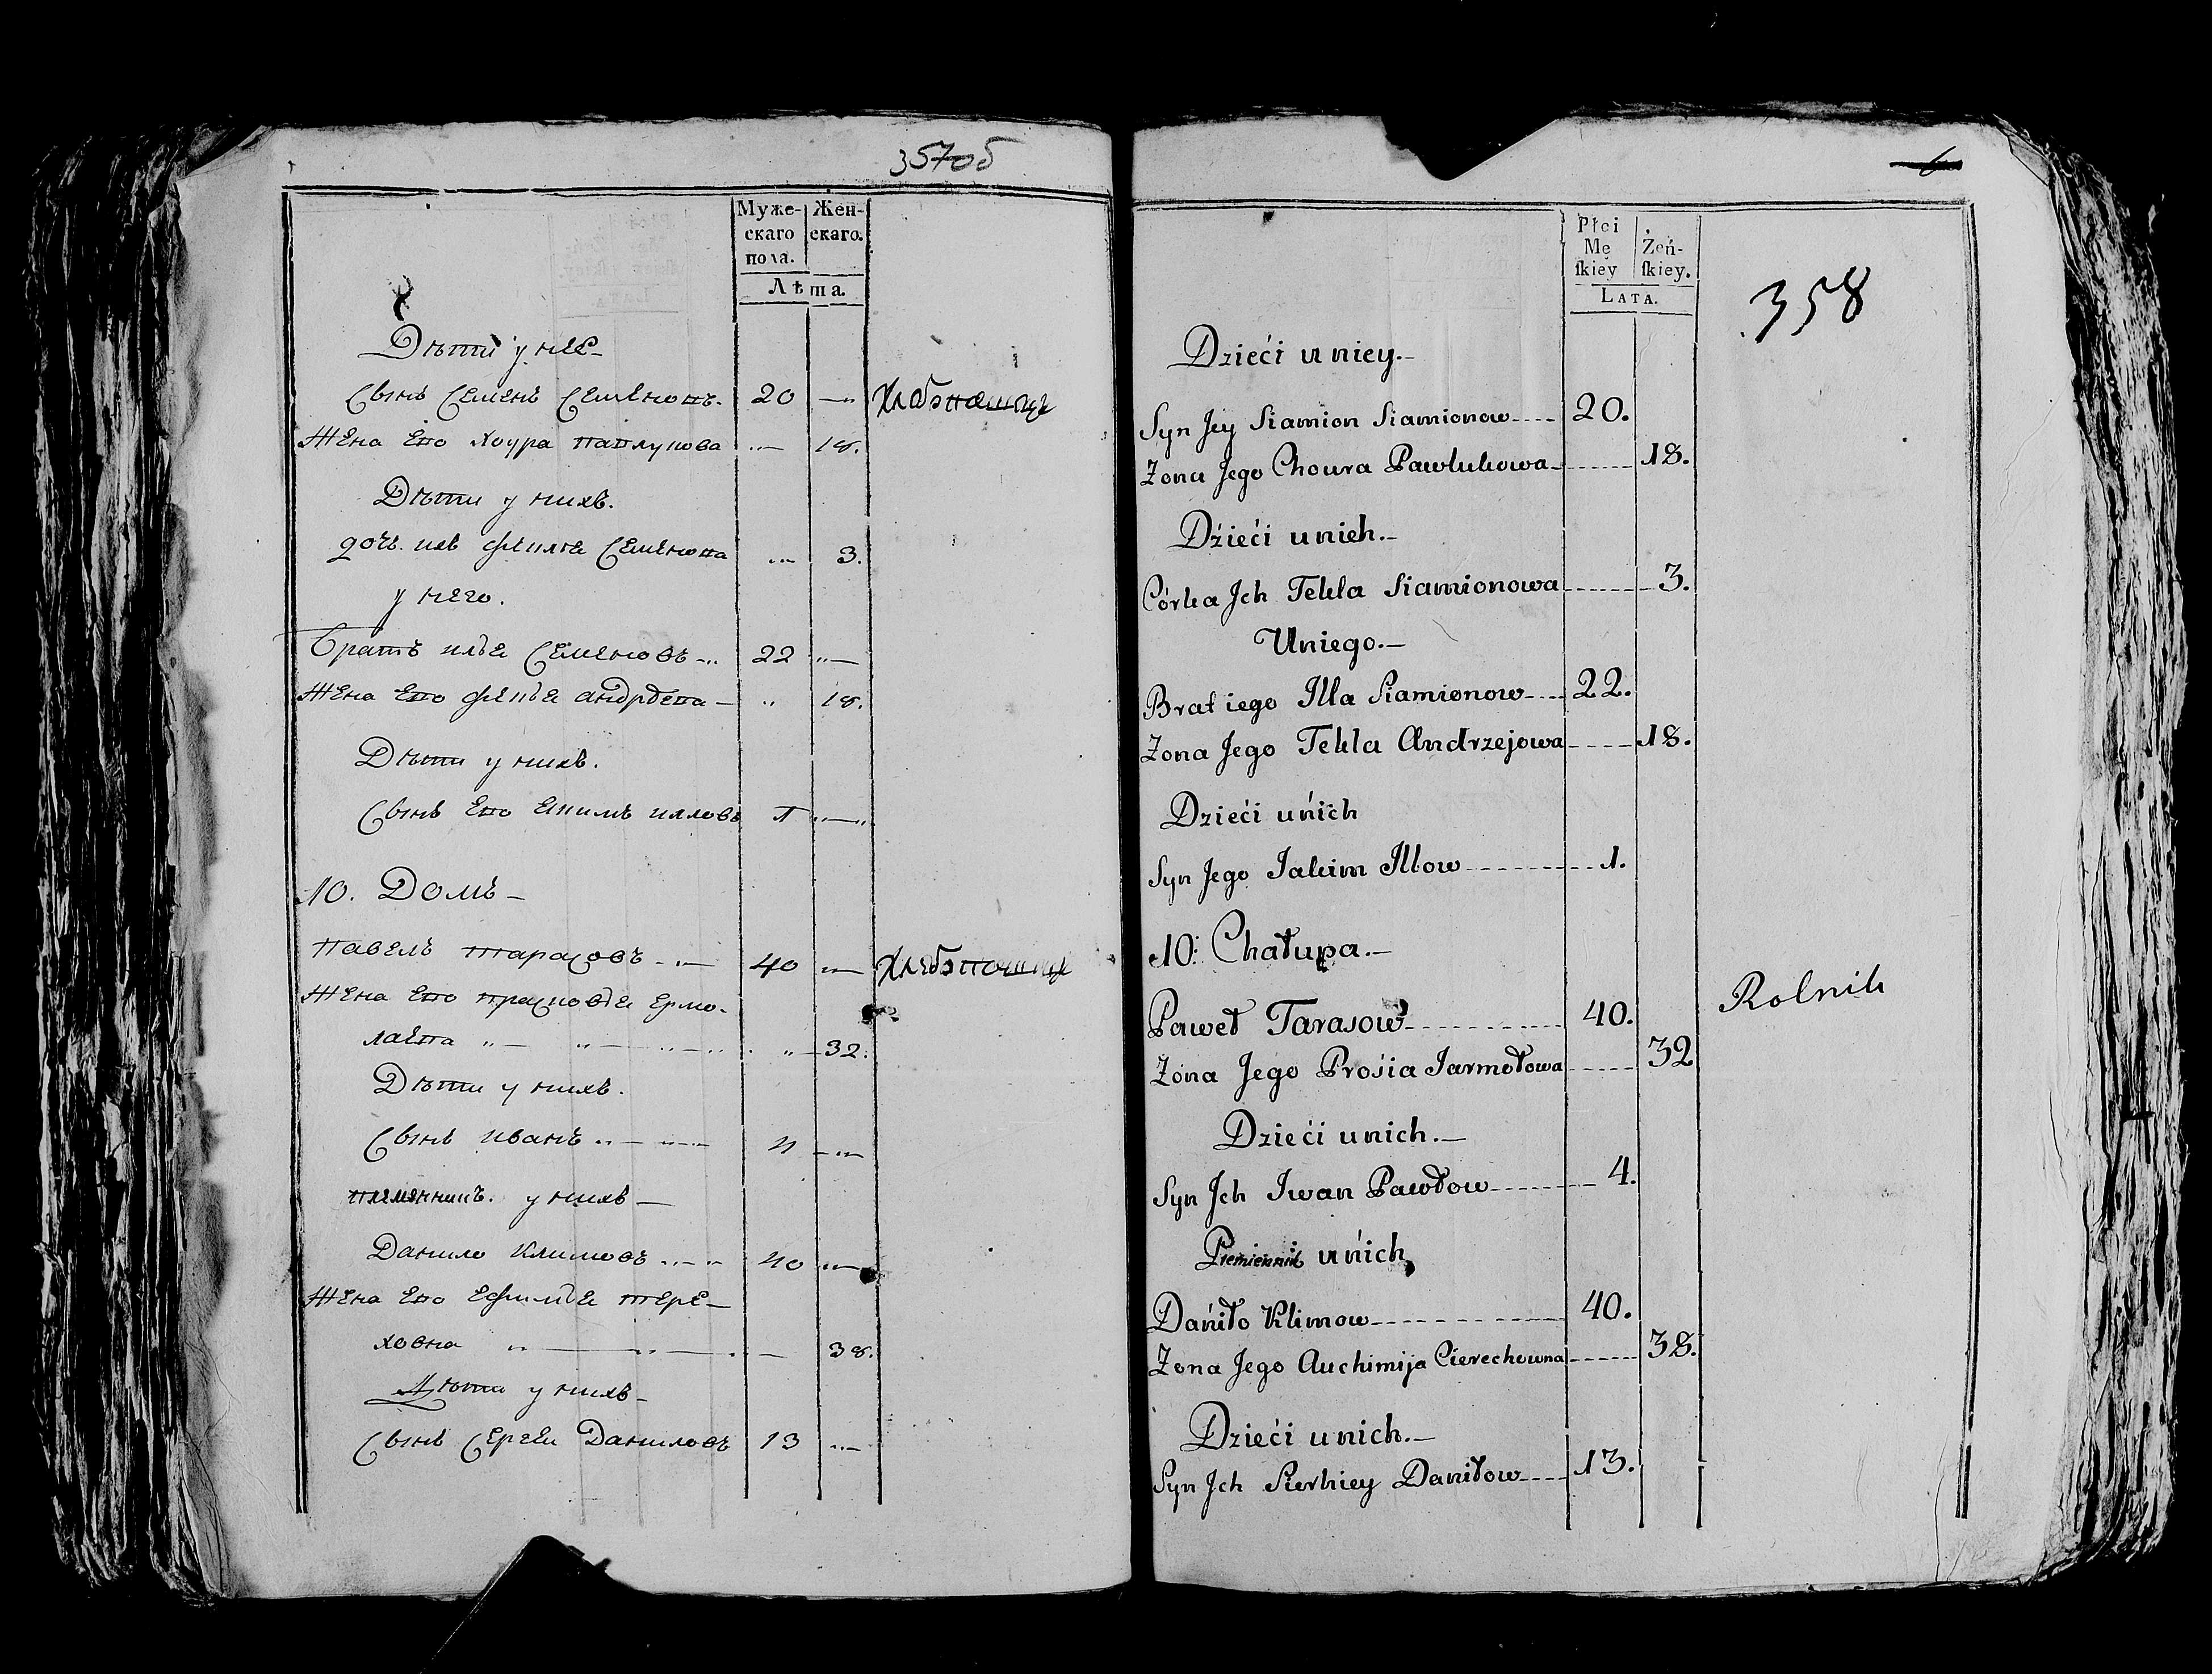 357об
Муже-
скаго
пола.
Жен-
скаго.
Лѣта.
Дѣти у нее
Сынъ Семенъ Семеновъ. 20 — Хлебопашецъ
Жена Его Хоура павлукова — 18.
Дѣти у нихъ.
дочь ихъ фекла Семенова ... 3.
у него.
Братъ илья Семеновъ 22 —
Жена Его фекла андрѣева — 18.
Дѣти у нихъ.
Сынъ Его Екимъ иловъ 1 —
10. Домъ —
павелъ тарасовъ — 40 — Хлебопашецъ
Жена Его прасковья Ермо-
лаева — 32.
Дѣти у нихъ.
Сынъ иванъ — 4 —
племянникъ. у нихъ —
Данило Климовъ — 40 —
Жена Его Ефимья тере-
ховна — 38.
Дѣти у нихъ
Сынъ Сергеи Даниловъ 13 —
6
358
Płci
Mę
ſkiey
Żeń-
ſkiey.
LATA.
Dzieći u niey.—
Syn Jey Siamion Siamionow 20.
Żona Jego Choura Pawlukowa 18.
Dźieći u nich.—
Córka Jch Tekla Siamionowa 3.
Uniego.—
Brat iego Illa Siamionow 22.
Żona Jego Tekla Andrzejowa 18.
Dzieći uńich
Syn Jego Jakim Illow 1.
10: Chałupa.—
Paweł Tarasow 40. Rolnik
Żona Jego Prośia Jarmołowa 32
Dzieći unich.—
Syn Jch Iwan Pawłow 4.
Plemiennik uńich
Dańiło Klimow 40.
Żona Jego Auchimija Cierechowna 38.
Dzieći unich.—
Syn Jch Sierhiey Daniłow 13.